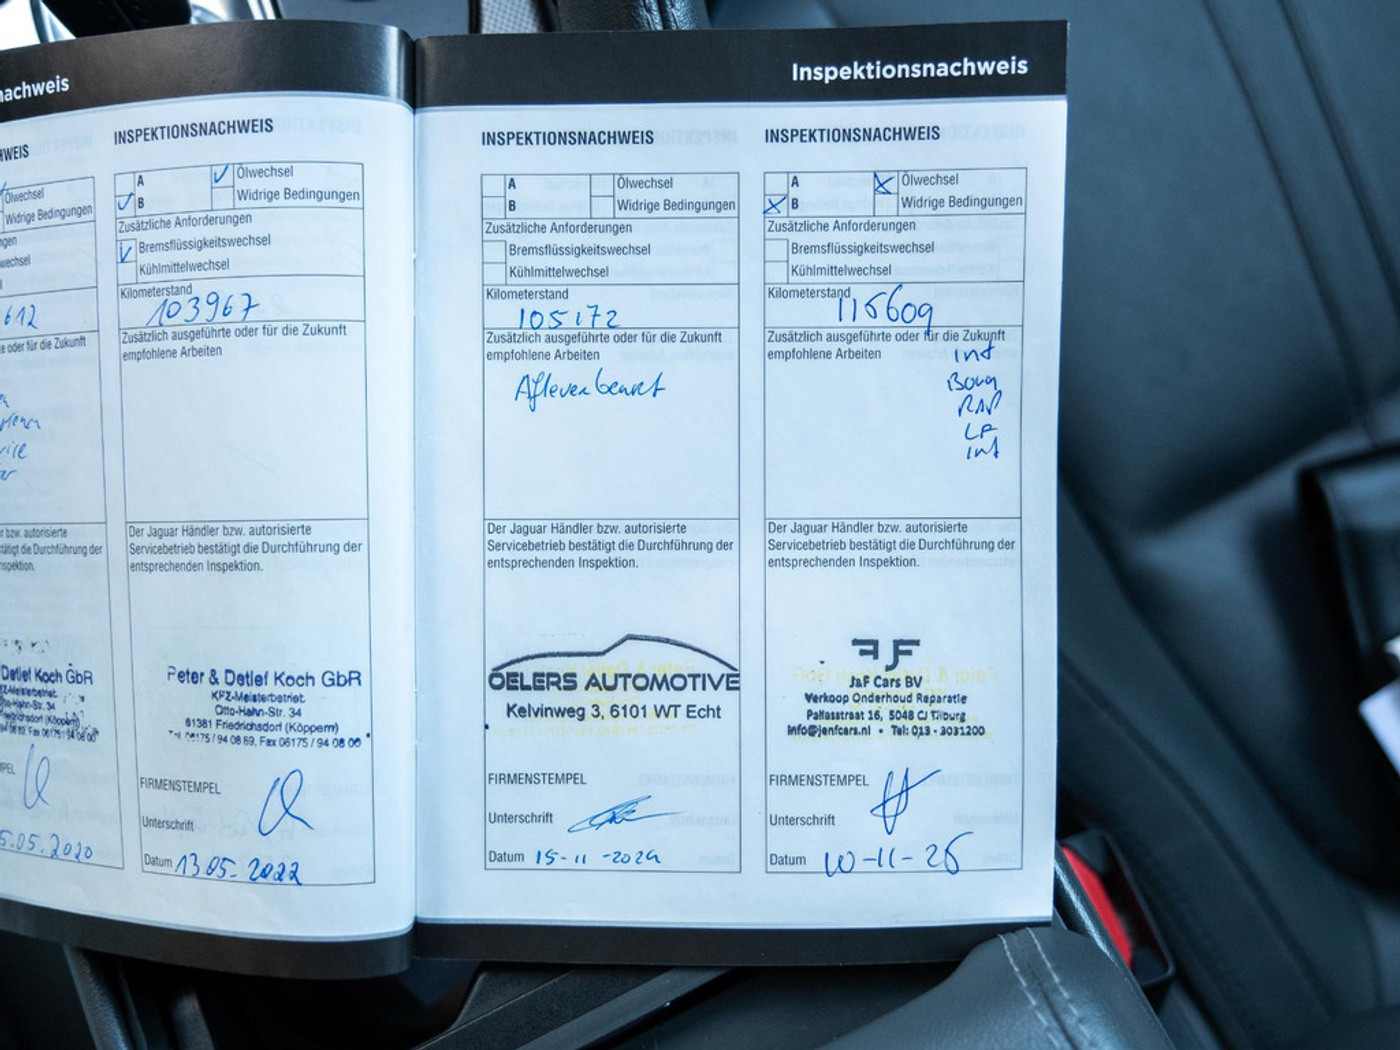 nachweis
WEIS
Ölwechsel
Widrige Bedingungen
ngen
wechsel
612
e oder für die Zukunft
r bzw. autorisierte
stätigt die Durchführung der
nspektion.
Detlef Koch GbR
KFZ-Meisterbetrieb
Otto-Hahn-Str. 34
Friedrichsdorf (Köppern)
MPEL
5.05.2020
INSPEKTIONSNACHWEIS
A
Ölwechsel
B
Widrige Bedingungen
Zusätzliche Anforderungen
Bremsflüssigkeitswechsel
Kühlmittelwechsel
Kilometerstand
103967
Zusätzlich ausgeführte oder für die Zukunft
empfohlene Arbeiten
Der Jaguar Händler bzw. autorisierte
Servicebetrieb bestätigt die Durchführung der
entsprechenden Inspektion.
Peter & Detlef Koch GbR
KFZ-Meisterbetrieb
Otto-Hahn-Str. 34
61381 Friedrichsdorf (Köppern)
Tel. 06175 / 94 08 89, Fax 06175 / 94 08 00
FIRMENSTEMPEL
Unterschrift
Datum 13.05.2022
Inspektionsnachweis
INSPEKTIONSNACHWEIS
A
Ölwechsel
B
Widrige Bedingungen
Zusätzliche Anforderungen
Bremsflüssigkeitswechsel
Kühlmittelwechsel
Kilometerstand
105172
Zusätzlich ausgeführte oder für die Zukunft
empfohlene Arbeiten
Afleverbeurt
Der Jaguar Händler bzw. autorisierte
Servicebetrieb bestätigt die Durchführung der
entsprechenden Inspektion.
OELERS AUTOMOTIVE
Kelvinweg 3, 6101 WT Echt
FIRMENSTEMPEL
Unterschrift
Datum 15-11-2024
INSPEKTIONSNACHWEIS
A
Ölwechsel
B
Widrige Bedingungen
Zusätzliche Anforderungen
Bremsflüssigkeitswechsel
Kühlmittelwechsel
Kilometerstand
115609
Zusätzlich ausgeführte oder für die Zukunft
empfohlene Arbeiten
Int
Boug
LF
Int
Der Jaguar Händler bzw. autorisierte
Servicebetrieb bestätigt die Durchführung der
entsprechenden Inspektion.
JF
J&F Cars BV
Verkoop Onderhoud Reparatie
Pallasstraat 16, 5048 CJ Tilburg
info@jenfcars.nl • Tel: 013 - 3031200
FIRMENSTEMPEL
Unterschrift
Datum 10-11-25